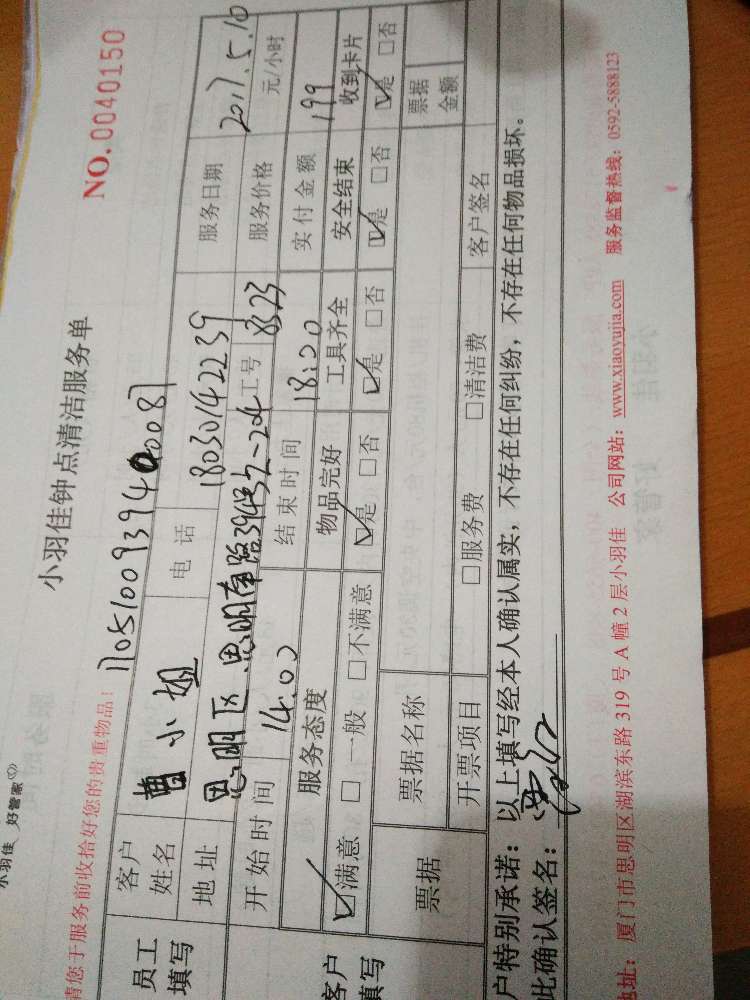 小羽佳 好管家
小羽佳钟点清洁服务单
NO.0040150
请您于服务前收拾好您的贵重物品!
1705100939400087
员工填写
客户姓名 曹小姐 电话 18030142239 服务日期 2017.5.10
地址 思明区.思明南路394号2-204 工号 8323 服务价格 元/小时
开始时间 14:00 结束时间 18:00 实付金额 199
客户填写
服务态度 物品完好 工具齐全 安全结束 收到卡片
☑满意 □一般 □不满意 ☑是 □否 ☑是 □否 ☑是 □否 ☑是 □否
票据 票据名称 票据金额
开票项目 □服务费 □清洁费 客户签名
户特别承诺:以上填写经本人确认属实,不存在任何纠纷,不存在任何物品损坏。
此确认签名:
地址:厦门市思明区湖滨东路319号A幢2层小羽佳 公司网站:www.xiaoyujia.com 服务监督热线:0592-5888123